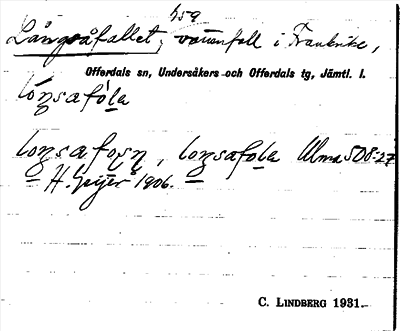 h59
Långsåfallet, vattenfall i Frankrike,
Offerdals sn, Undersåkers och Offerdals tg, Jämtl. l.
loŋsafo̱la
loŋsafoṣn, loŋsafola Alma 508:27
H. Geijer 1906.
C. LINDBERG 1931.